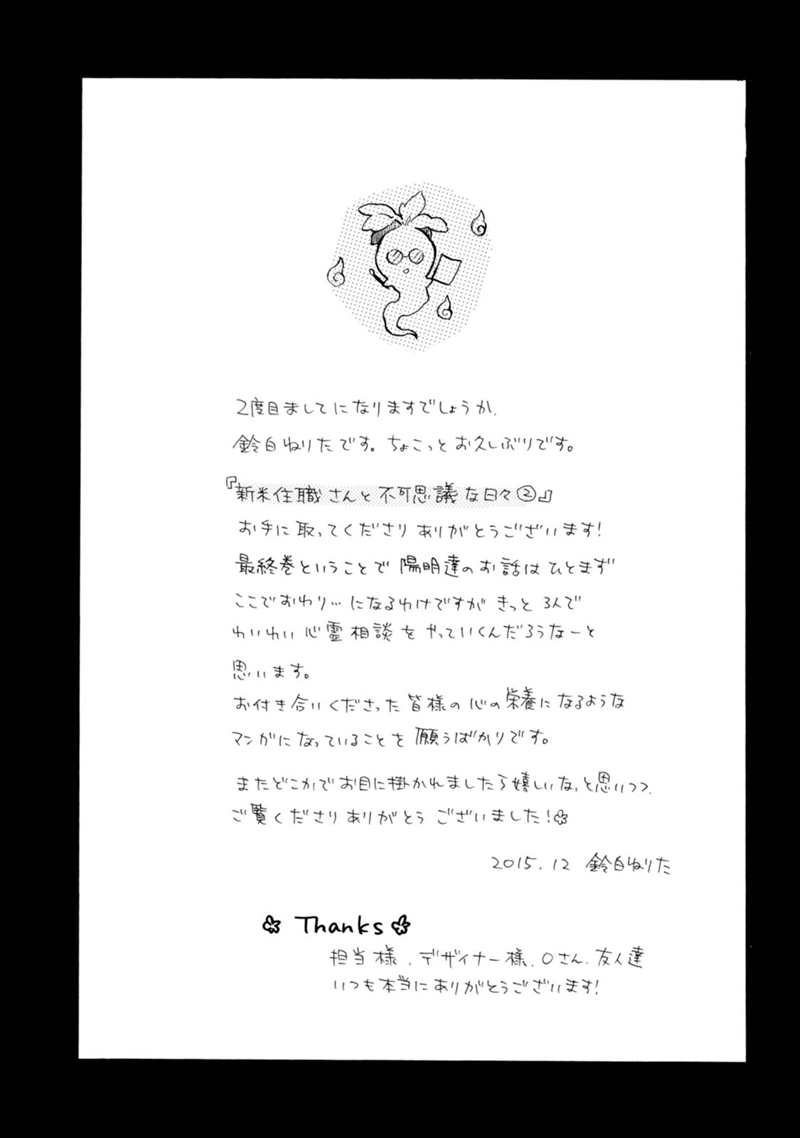 2度目ましてになりますでしょうか、
鈴白ねりたです。ちょこっとお久しぶりです。
『新米住職さんと不可思議な日々②』
お手に取ってくださりありがとうございます!
最終巻ということで陽明達のお話はひとまず
ここでおわり…になるわけですがきっと3人で
わいわい心霊相談をやっていくんだろうなーと
思います。
お付き合いくださった皆様の心の栄養になるような
マンガになっていることを願うばかりです。
またどこかでお目に掛かれましたら嬉しいな、と思いつつ、
ご覧くださりありがとうございました!
2015.12 鈴白ねりた
Thanks
担当様、デザイナー様、Oさん、友人達
いつも本当にありがとうございます!